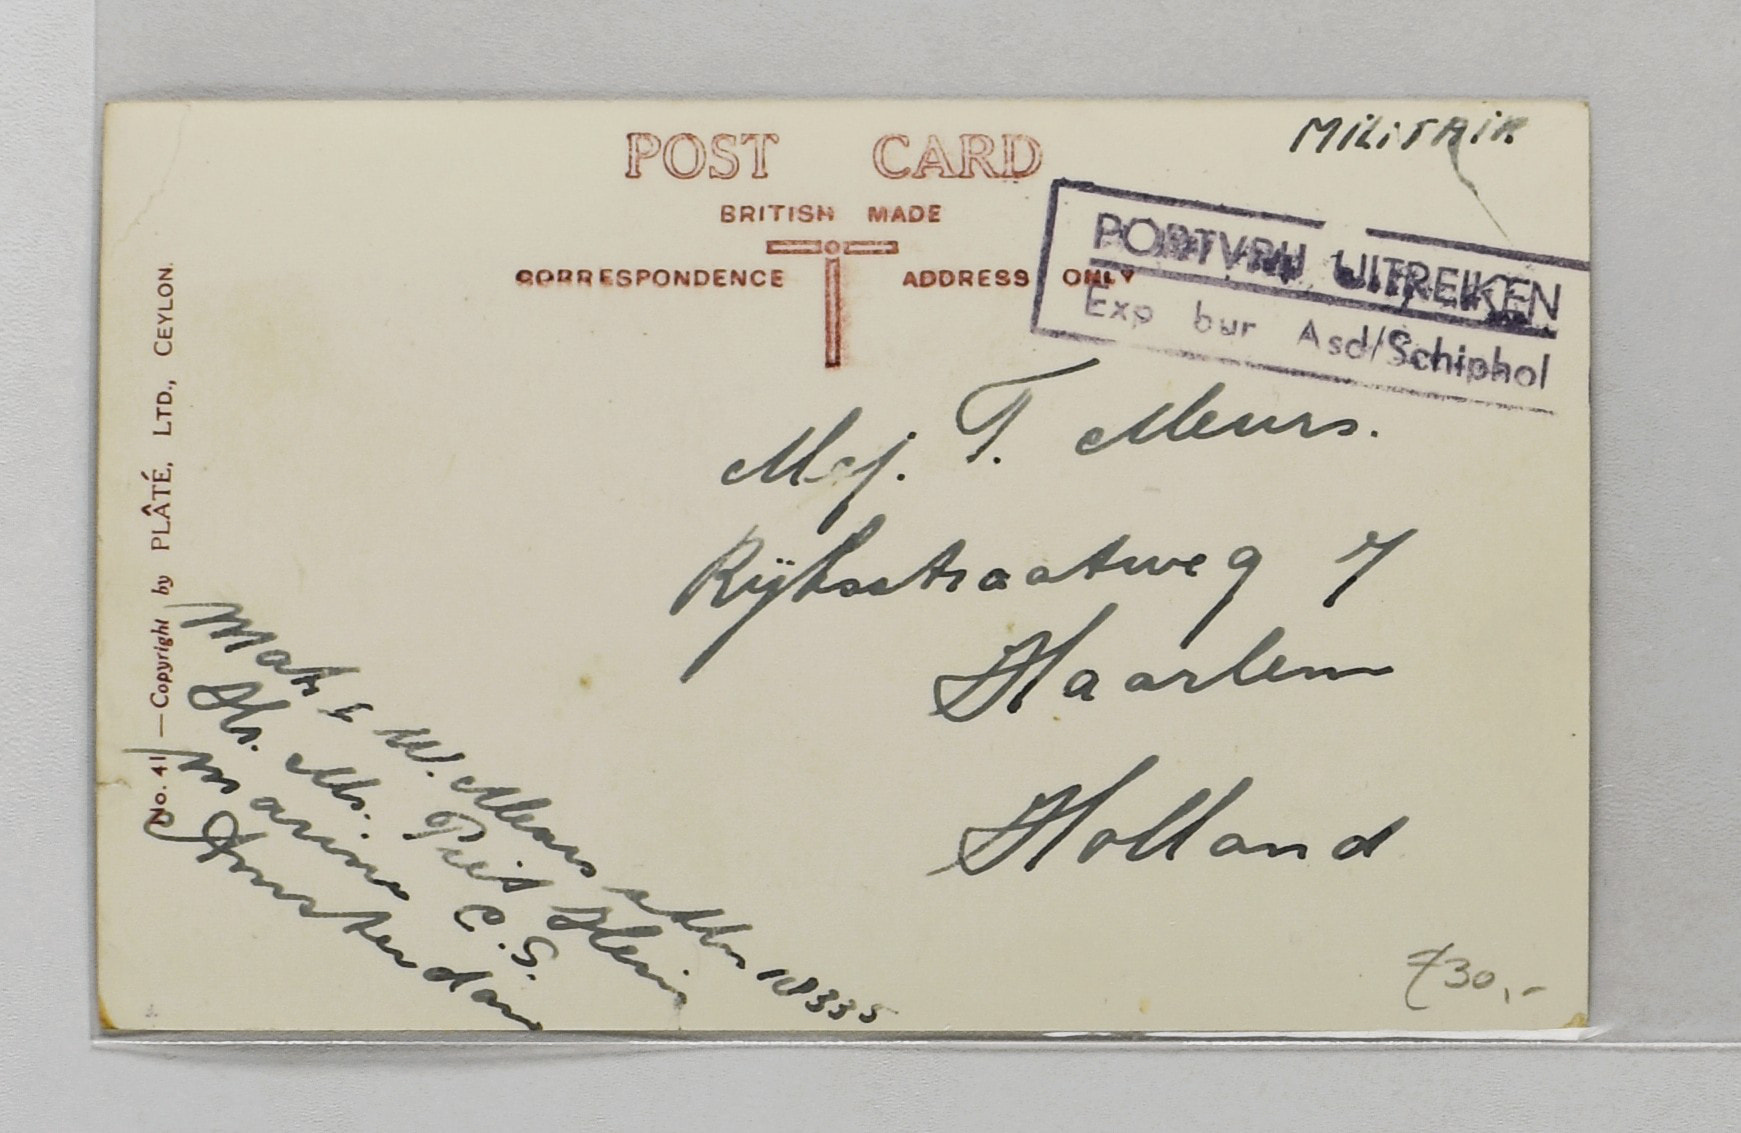 MiLiTAiR
POST CARD
BRITISH MADE
CORRESPONDENCE ADDRESS ONLY
PORTVRIJ UITREIKEN
Exp bur Asd/Schiphol
Mej. T. Meurs.
Rijksstraatweg 7
Haarlem
Holland
No. 41 —Copyright by PLÂTÉ, LTD., CEYLON.
Matr W. Meurs
Hr. Ms. Piet Hein
Marine C.S.
Amsterdam
30,-